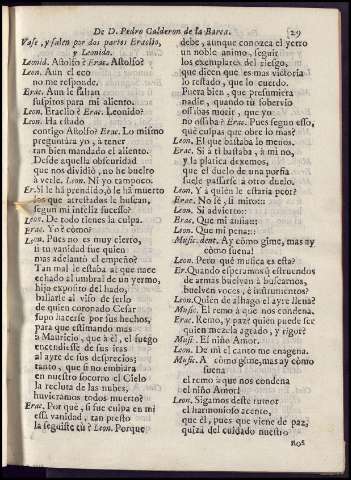 De D. Pedro Calderon de la Barca. 29
Vase, y salen por dos partes Eraclio,
y Leonido.
Leonid. Astolfo? Erac. Astolfo?
Leon. Aun el eco
no me responde.
Erac. Aun le faltan
suspiros para mi aliento.
Leon. Eraclio? Erac. Leonido?
Leon. Ha estado
contigo Astolfo? Erac. Lo mismo
preguntára yo, a tener
tan bien mandado el aliento.
Desde aquella obscuridad
que nos dividiò, no he buelto
à verle. Leon. Ni yo tampoco.
Er. Si le ha prendido, ò le ha muerto
los que arrestados le buscan,
segun mi infeliz sucesso?
Leon. De todo tienes la culpa.
Erac. Yo? còmo?
Leon. Pues no es muy cierto,
si tu vanidad fue quien
mas adelantò el empeño?
Tan mal le estaba al que nace
echado al umbral de un yermo,
hijo exposito del hado,
hallarse al viso de serlo
de quien coronado Cesar
supo hacerse por sus hechos,
para que estimando mas
à Mauricio, que à èl, el fuego
encendiesse de sus iras
al ayre de sus desprecios;
tanto, que si no embiàra
en nuestro socorro el Cielo
la recluta de las nubes,
huvieramos todos muerto?
Erac. Por què, si fue culpa en mi
essa vanidad, tan presto
la seguiste tù? Leon. Porque
debe, aunque conozca el yerro
un noble animo, seguir
los exemplares del riesgo,
que dicen que es mas victoria
lo restado, que lo cuerdo.
Puera bien, que presumiera
nadie, quando tù sobervio
ossibas morir, que yo
no ossaba? Erac. Pues segun esso,
què culpas que obre lo mas?
Leon. El que bastaba lo menos.
Erac. Si à ti bastaba, à mi no,
y la platica dexemos,
que el duelo de una porfia
suele passarse à otro duelo.
Leon. Y à quien le estaria peor?
Erac. No sè, si miro:::
Leon. Si advierto:::
Erac. Que mi ansia:::
Leon. Que mi pena:::
Music. dent. Ay còmo gime, mas ay
còmo suena!
Leon. Pero què musica es esta?
Er. Quando esperamos q̃ estruendos
de armas buelvan à buscarnos,
buelven voces, è instrumentos?
Leon. Quien de alhago el ayre llena?
Music. El remo à que nos condena.
Erac. Remo, y paz? quien puede ser
quien mezcla agrado, y rigor?
Musi. El niño Amor.
Leon. De mì el canto me enagena.
Music. A còmo gime, mas ay còmo
suena
el remo à que nos condena
el niño Amor!
Leon. Sigamos deste rumor
el harmonioso acento,
que èl, pues que viene de paz,
quizà del cuidado nuestro
nos